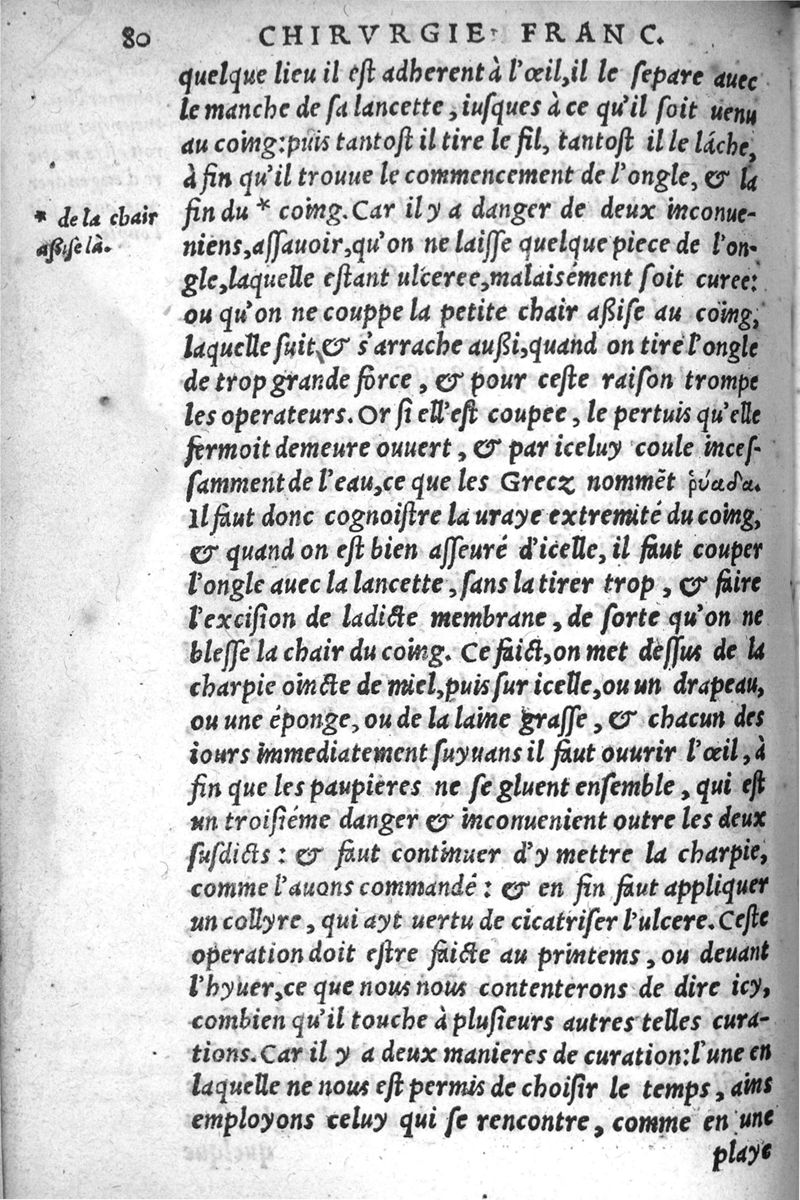 80 CHIRVRGIE FRANC.
quelque lieu il eſt adherent à l'œil, il le ſepare auec
le manche de ſa lancette, iuſques à ce qu'il ſoit uenu
au coing: puis tantoſt il tire le fil, tantoſt il le lâche,
à fin qu'il trouue le commencement de l'ongle, & la
* de la chair
aßiſe là.
fin du * coing. Car il y a danger de deux inconue-
niens, aſſauoir, qu'on ne laiſſe quelque piece de l'on-
gle, laquelle eſtant ulceree, malaisément ſoit curee:
ou qu'on ne couppe la petite chair aßiſe au coing,
laquelle ſuit, & s'arrache außi, quand on tire l'ongle
de trop grande force, & pour ceſte raiſon trompe
les operateurs. Or ſi ell'eſt coupee, le pertuis qu'elle
fermoit demeure ouuert, & par iceluy coule inceſ-
ſamment de l'eau, ce que les Grecz nommẽt ῥυάδα.
Il faut donc cognoiſtre la uraye extremité du coing,
& quand on eſt bien aſſeuré d'icelle, il faut couper
l'ongle auec la lancette, ſans la tirer trop, & faire
l'exciſion de ladicte membrane, de ſorte qu'on ne
bleſſe la chair du coing. Ce faict, on met deſſus de la
charpie oincte de miel, puis ſur icelle, ou un drapeau,
ou une éponge, ou de la laine graſſe, & chacun des
iours immediatement ſuyuans il faut ouurir l'œil, à
fin que les paupieres ne ſe gluent enſemble, qui eſt
un troiſiéme danger & inconuenient outre les deux
ſuſdicts: & faut continuer d'y mettre la charpie,
comme l'auons commandé: & en fin faut appliquer
un collyre, qui ayt uertu de cicatriſer l'ulcere. Ceſte
operation doit eſtre faicte au printems, ou deuant
l'hyuer, ce que nous nous contenterons de dire icy,
combien qu'il touche à pluſieurs autres telles cura-
tions. Car il y a deux manieres de curation: l'une en
laquelle ne nous eſt permis de choiſir le temps, ains
employons celuy qui ſe rencontre, comme en une
playe